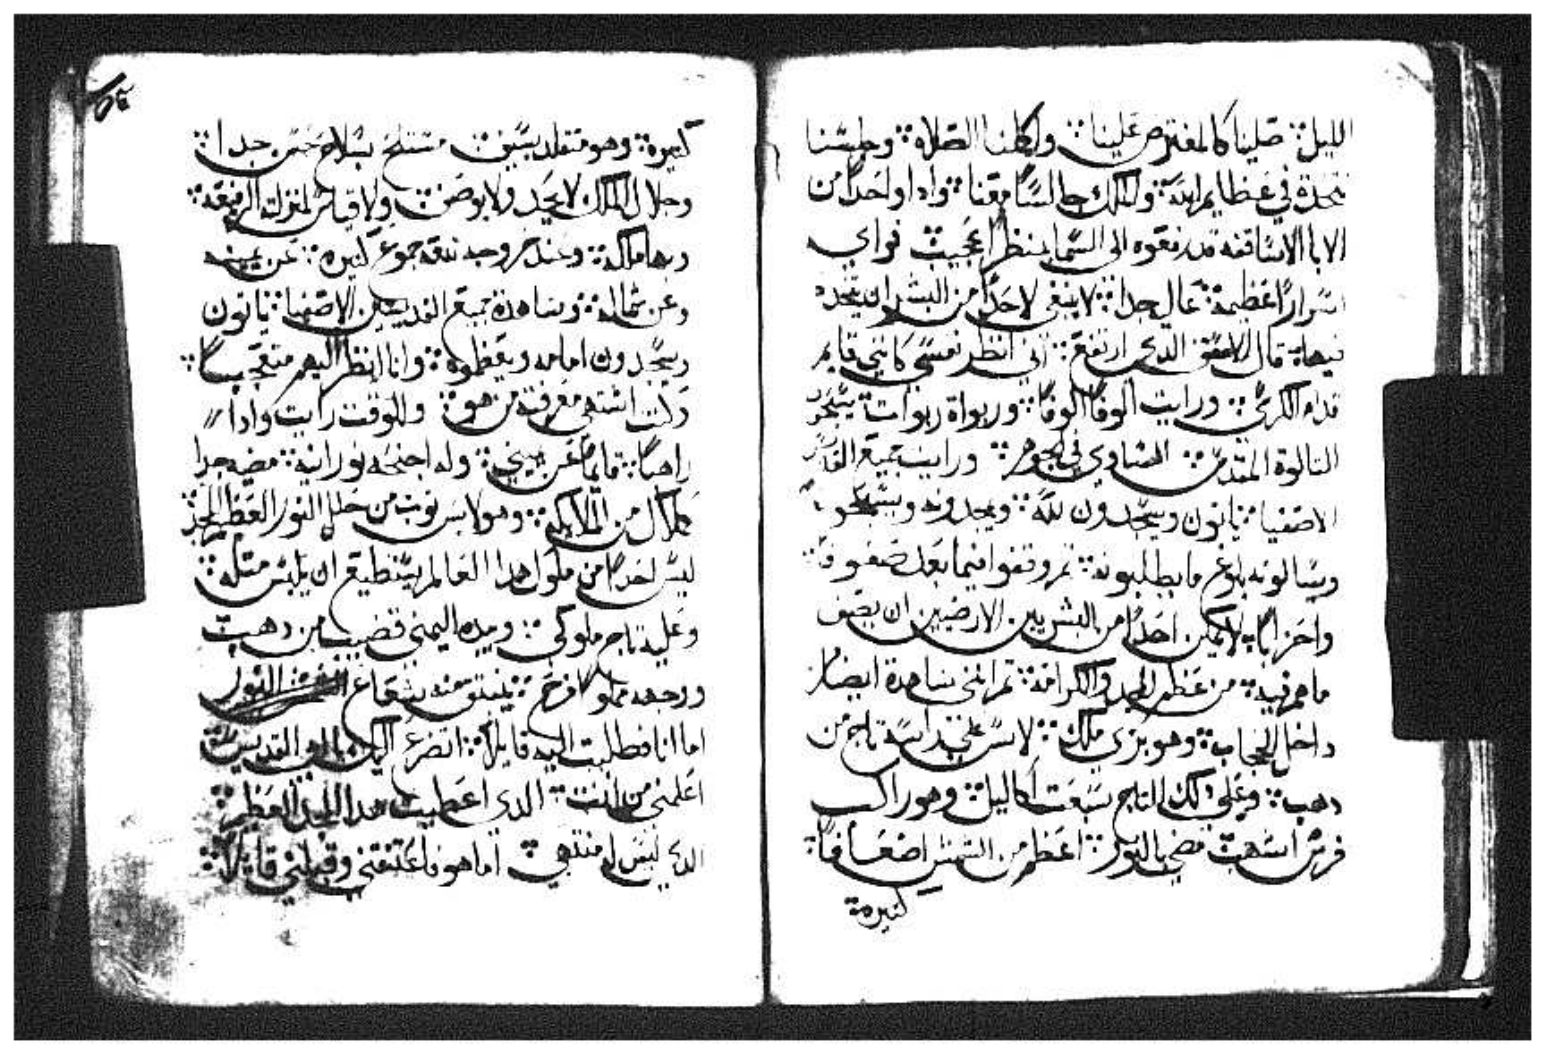 الليل صلينا كالمفترض علينا وكملنا الصلاة وجلسنا
نتحدة في عظايم الله والملك جالسًا معنا وادا واحدًا من
الابا الاساقفه قد رفعوه الى السما لينظر العجيب فراي
اسرارًا عظيمة عاليه جدا لا ينبغي لاحدًا من البشر ان يتحدة
فيها قال الاسقف الدي ارتفع اني انظر نفسي كانني قايم
قدام الكرسي ورايت ألوفًا ألوفًا وربواة ربوات يسجدون
التالوة المقدس المساوي في الجوهر ورايت جميع القديسين
الاصفيا ياتون ويسجدون لله ويمجدونه ويسبحونه
ويسالونه بلوغ ما يطلبونه تم وقفوا فيما بعد صفوفًا
واحزابًا لا يمكن احدًا من البشريين الارضيين ان يصف
ما هم فيه من عظم المجد والكرامة تم انني شاهدة ايضا من
داخل الحجاب وهو بزي ملك لابس على راسه تاج من
دهب وعلى دلك التاج سبعة اكاليل وهو راكب
فرس اشهب مضي بالنور اعظم من الشمس اضعافًا
كتيرة
كتيرة وهو متقلد بسيف متسلح بسلاح حسن جدا
وجلال الملك لا يحد ولا يوصف ولا قياس لمنزلته الرفيعه
وبهاه اكمله وعند خروجه تبعه جموع كتيره عن يمينه
وعن شماله وشاهدة جميع القديسين الاصفيا ياتون
ويسجدون امامه ويعظموه وانا انظر اليهم متعجبًا
وكنت اشتهي معرفته من هو وللوقت رايت وادا
راهبًا قايمًا عن يميني وله اجنحه نورانيه مضيه جدا
كمتال من الملايكه وهو لابس توب من حلل النور العظيم المجد
ليس احدًا من ملوك هدا العالم يستطيع ان يلبس متله
وعليه تاج ملوكي وبيده اليمنى قضيب من دهب
ووجهه مملوا فرح ينبتق منه شعاع النور
اما انا فطلبت اليه قايلًا اتضرع اليك يا ابي القديس
اعلمني من انت الدي اعطيت هدا المجد العظيم
الدي ليس له منتهي اما هو فاعتنقني وقبلني قايلًا